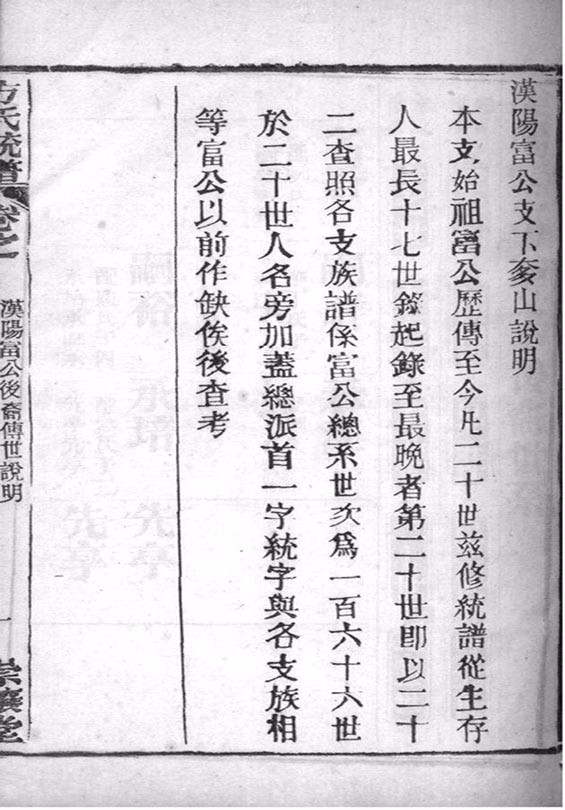 漢陽富公支下奓山說明
本支始祖富公歷傳至今凡二十世兹修統譜從生存
人最長十七世錄起錄至最晚者第二十世卽以二十
二查照各支族譜係富公總系世次爲一百六十六世
於二十世人名旁加蓋總派首一字統字與各支族相
等富公以前作缺俟後查考
方氏統譜
卷之一
漢陽富公後裔傳世說明
一
崇讓堂